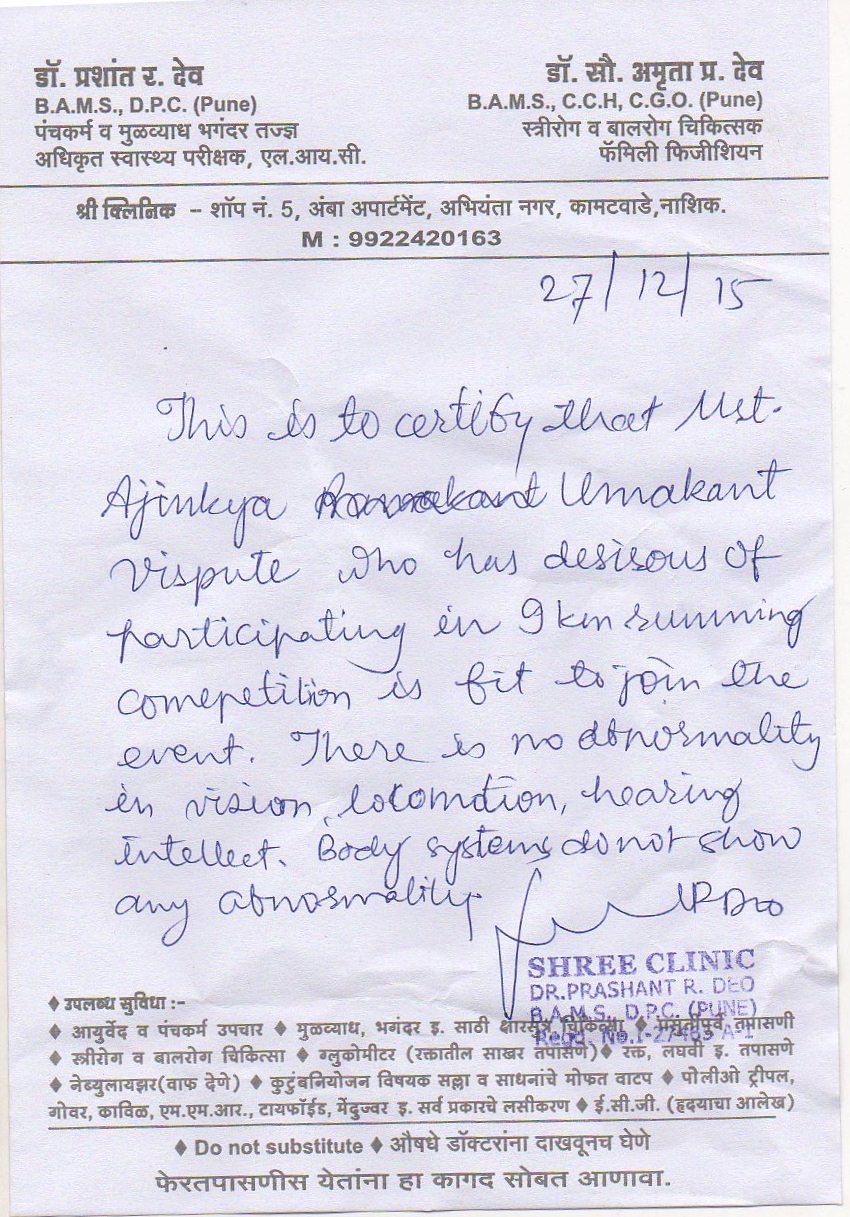 डॉ. प्रशांत र. देव
B.A.M.S., D.P.C. (Pune)
पंचकर्म व मुळव्याध भगंदर तज्ज्ञ
अधिकृत स्वास्थ्य परीक्षक, एल.आय.सी.
डॉ. सौ. अमृता प्र. देव
B.A.M.S., C.C.H, C.G.O. (Pune)
स्त्रीरोग व बालरोग चिकित्सक
फॅमिली फिजीशियन
श्री क्लिनिक – शॉप नं. 5, अंबा अपार्टमेंट, अभियंता नगर, कामटवाडे,नाशिक.
M : 9922420163
27/12/15
This is to certify that Mst.
Ajinkya Umakant
Vispute who has desirous of
participating in 9 km running
comepetition is fit to join the
event. There is no abnormality
in vision, locomotion, hearing
intellect. Body systems do not show
any abnormality.
PRDeo
SHREE CLINIC
DR.PRASHANT R. DEO
B.A.M.S., D.P.C. (PUNE)
Regd. No.I-27463 A-1
♦ उपलब्ध सुविधा :-
♦ आयुर्वेद व पंचकर्म उपचार ♦ मुळव्याध, भगंदर इ. साठी क्षारसूत्र चिकित्सा ♦ प्रसुतीपूर्व तपासणी
♦ स्त्रीरोग व बालरोग चिकित्सा ♦ ग्लुकोमीटर (रक्तातील साखर तपासणे) ♦ रक्त, लघवी इ. तपासणे
♦ नेब्युलायझर(वाफ देणे) ♦ कुटुंबनियोजन विषयक सल्ला व साधनांचे मोफत वाटप ♦ पोलीओ ट्रीपल,
गोवर, काविळ, एम.एम.आर., टायफॉईड, मेंदुज्वर इ. सर्व प्रकारचे लसीकरण ♦ ई.सी.जी. (हृदयाचा आलेख)
♦ Do not substitute ♦ औषधे डॉक्टरांना दाखवूनच घेणे
फेरतपासणीस येतांना हा कागद सोबत आणावा.